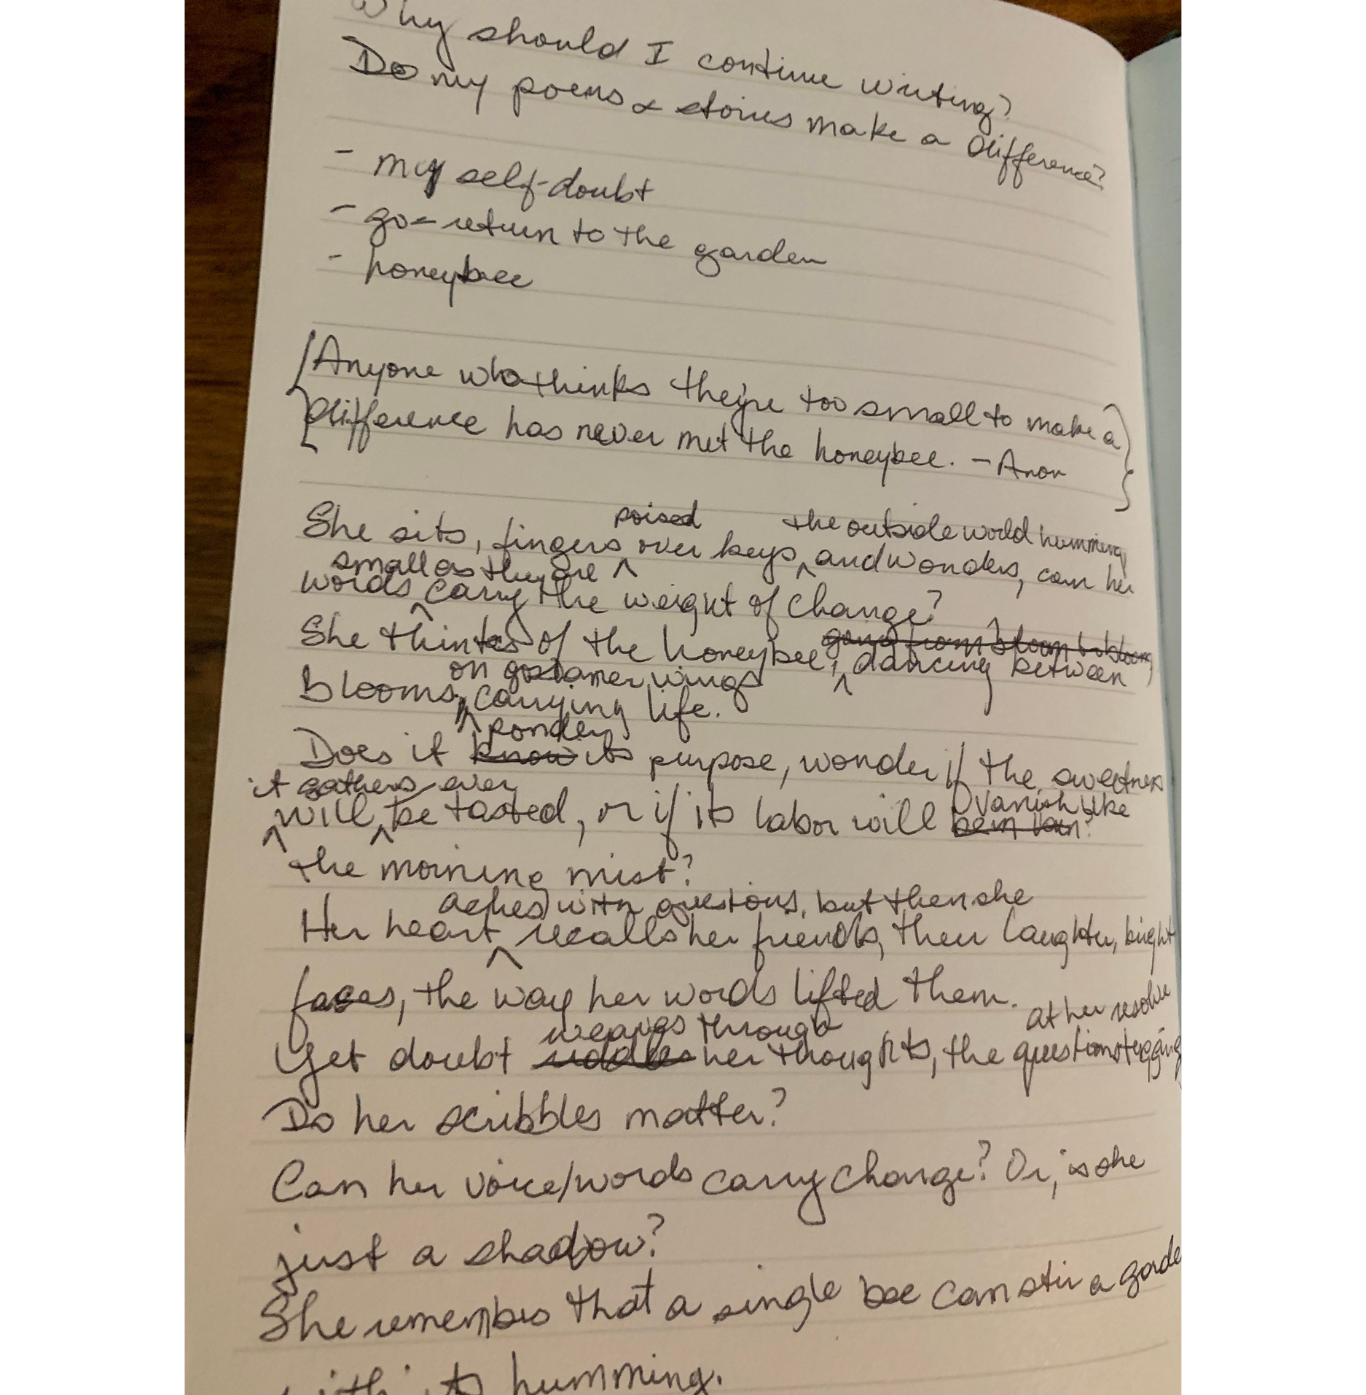 Why should I continue writing?
Do my poems & stories make a difference?
- my self-doubt
- go - return to the garden
- honeybee
[Anyone who thinks they're too small to make a
difference has never met the honeybee. - Anon]
poised the outside world humming,
She sits, fingers over keys, and wonders, can her
small as they are
words carry the weight of change?
She thinks of the honeybee, dancing between
from bloom to bloom
on gossamer wings
blooms, carrying life.
ponder
Does it know its purpose, wonder if the sweetness
it gathers ever
will be tasted, or if its labor will vanish like
be in vain?
the morning mist?
aches with questions, but then she
Her heart recalls her friends, their laughter, bright
faces, the way her words lifted them.
weaves through at her resolve
Yet doubt her thoughts, the questions tugging
Do her scribbles matter?
Can her voice/words carry change? Or, is she
just a shadow?
She remembers that a single bee can stir a garde
with its humming.